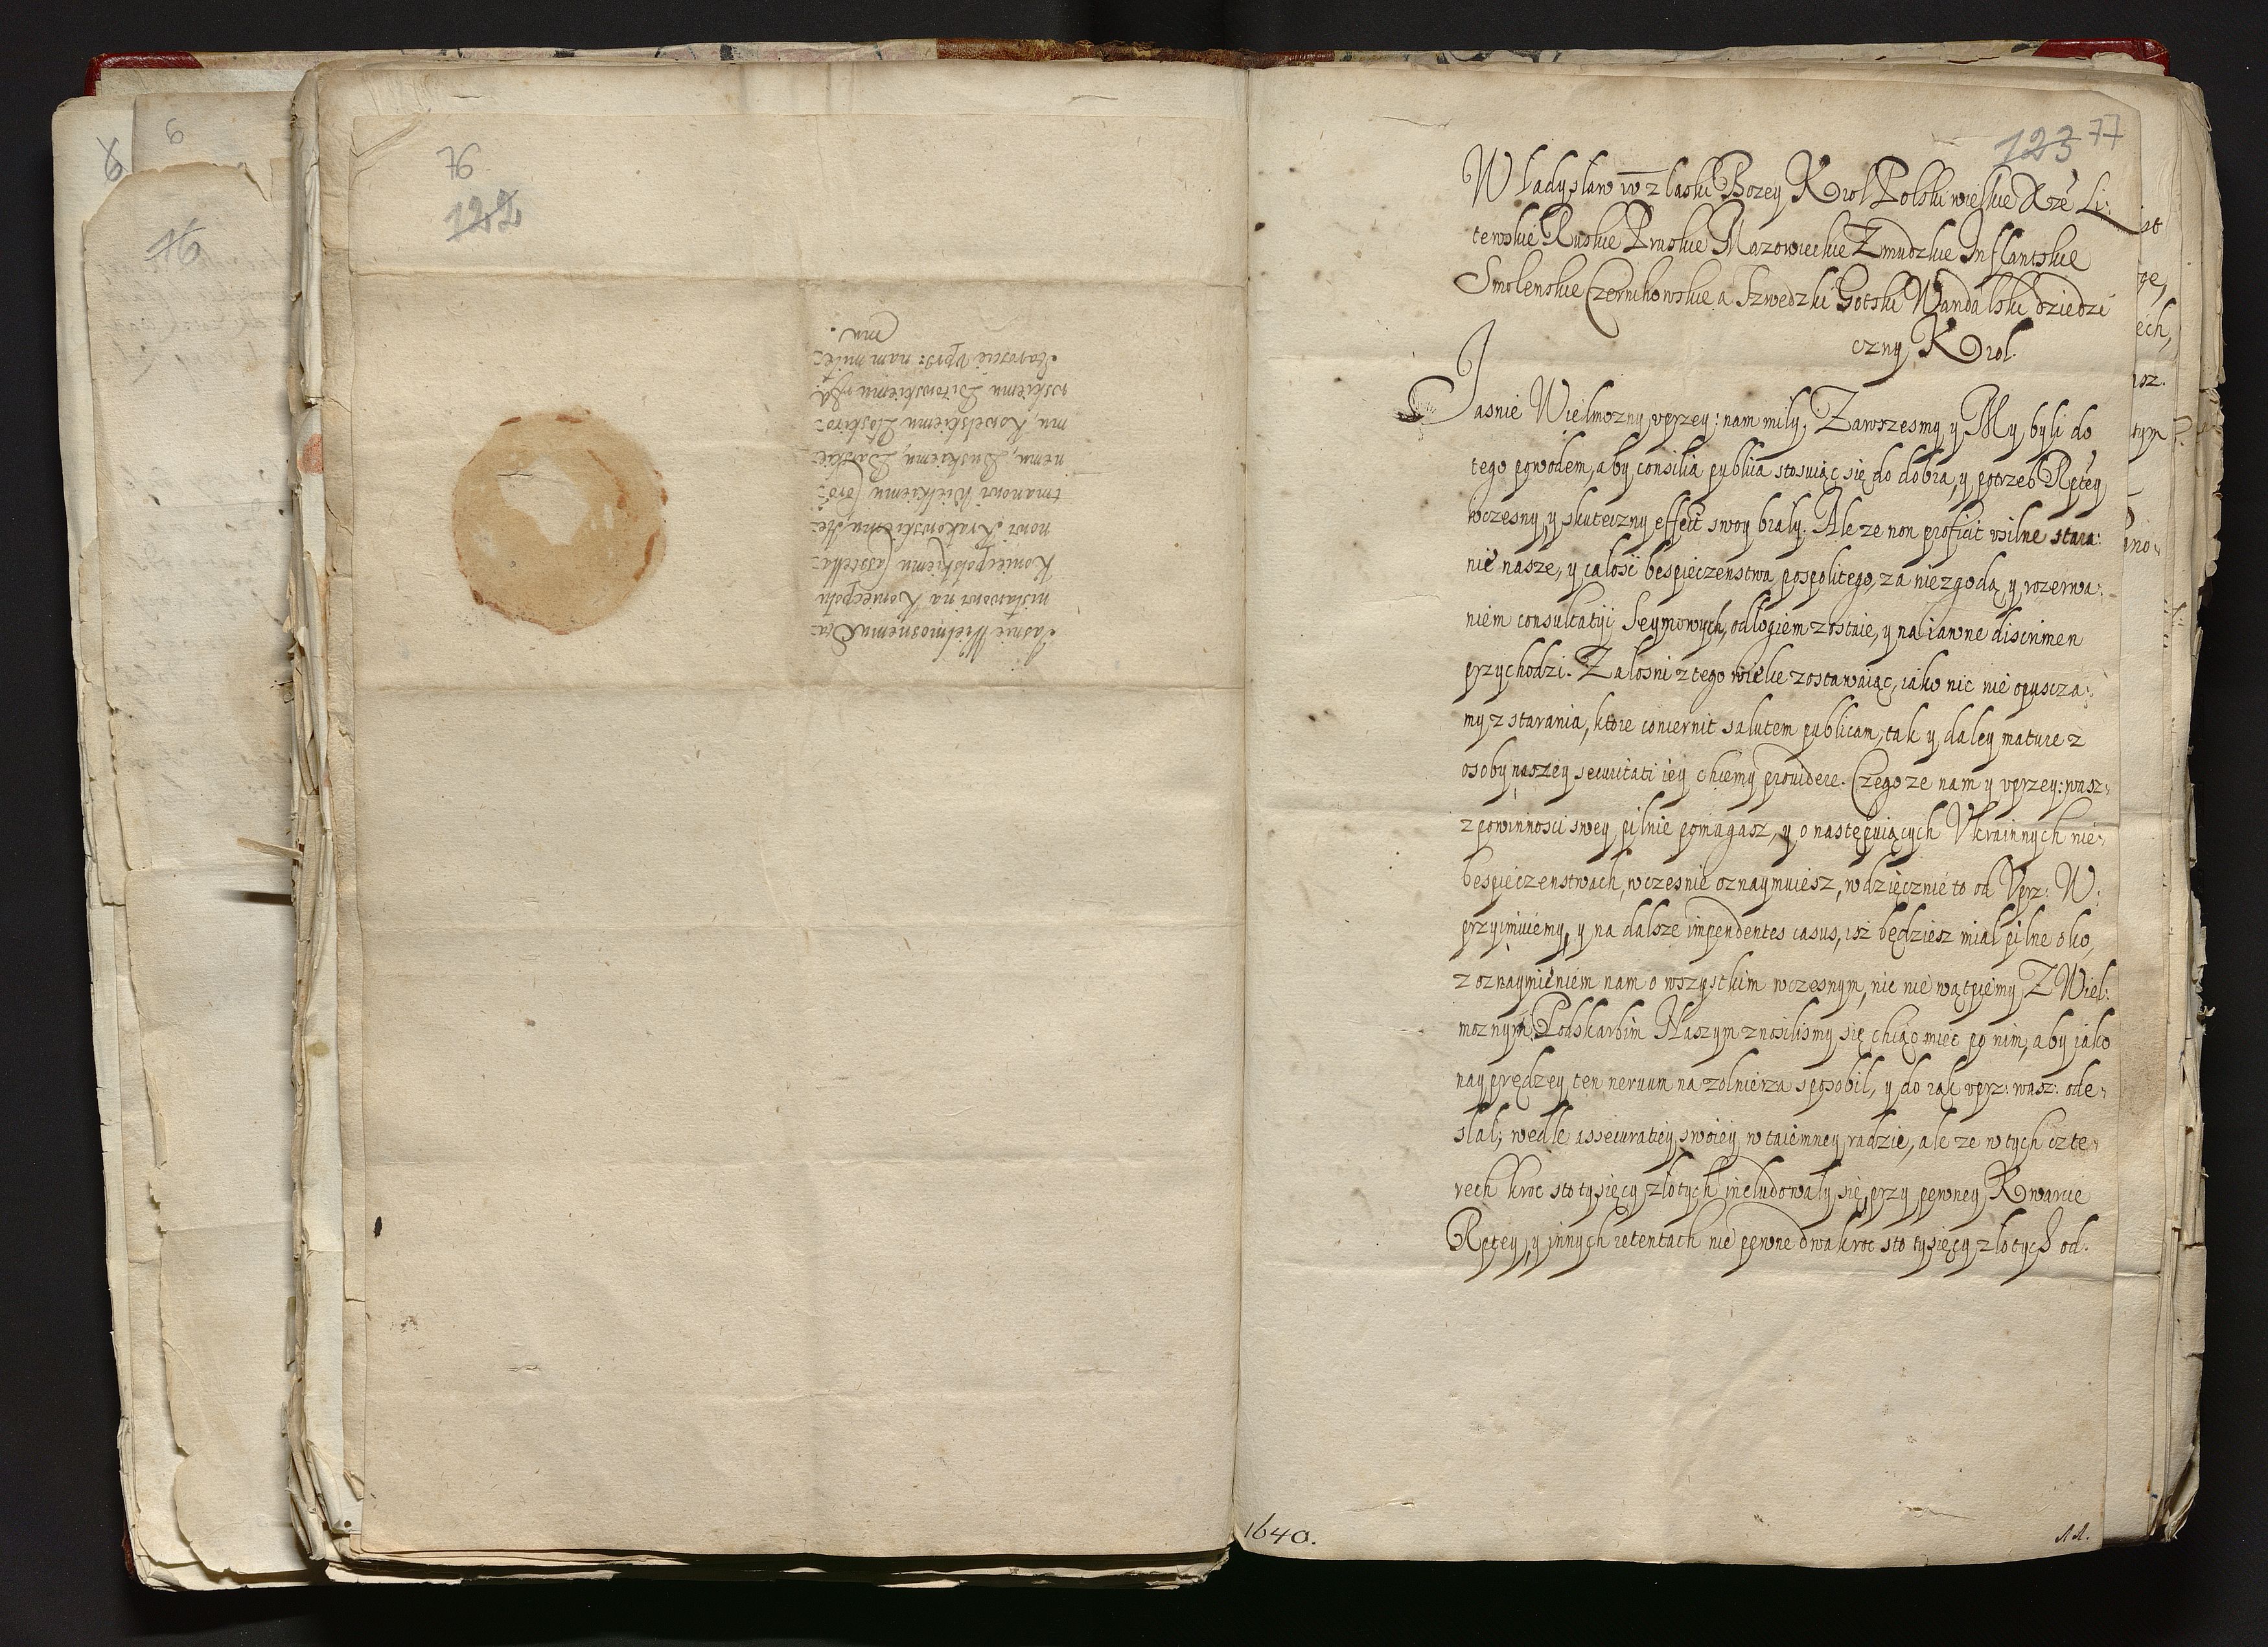 76
122
Jasnie Wielmoznemu Sta:
nisławowi na Koniecpolu
Koniecpolskiemu Casstella:
nowi Krakowskiemu, He:
tmanowi Wielkiemu Coro:
nemu, Buskiemu, Barskie:
mu, Kowelskiemu Płoskiro:
wskiemu Staroscie
Staroscie Uprz: nam miłe:
mu.
123 77
Wladysław IV z łaski Bozey Krol Polski wielkie Xże Li:
tewskie Ruskie Pruskie Mazowieckie Zmudzkie Inflantskie
Smolenskie Czernihowskie a Szwedzki Gotski Wandalski dziedzi
czny Krol.
Jasnie Wielmozny vprzey: nam miły, Zawszesmy y My byli do
tego powodem, aby consilia publica stosuiąc się do dobra, y potrzeb Rptey
wczesny, y skuteczny effect swoy brały. Ale ze non proficit vsilne stara:
nie nasze, y całosc bespieczenstwa pospolitego, za niezgodą y rozerwa:
niem consultatiy Seymowych, odłogiem zostaie, y na iawne discrimen
przychodzi. Załosni z tego wielce zostawaiąc, iako nic nie opuscza:
my z starania, ktore concernit salutem publicam, tak y daley mature z
osoby naszey securitati iey chcemy prouidere. Czego ze nam y vprzey: wasz:
z powinnosci swey pilnie pomagasz, y o następuiących Vkrainnych nie:
bespieczenstwach, wczesnie oznaymuiesz, wdzięcznie to od Vprz: W:
przyimuiemy, y na dalsze impendentes casus, isz będziesz miał pilne oko,
z oznaymieniem nam o wszystkim wczesnym, nic nie wątpiemy. Z Wiel:
moznym Podskarbim Naszym znosilismy się chcąc miec po nim, aby iako
nayprędzey ten neruum na zolnierza sposobil, y do rąk vprz: wasz: ode:
słał, wedle assecuratiey swoiey w taiemney radzie, ale ze w tych czte:
rech kroc sto tysięcy złotych includowały się, przy pewney Kwarcie
Rptey, y innych retentach nie pewne dwakroc sto tysięcy złotych od.
1640.